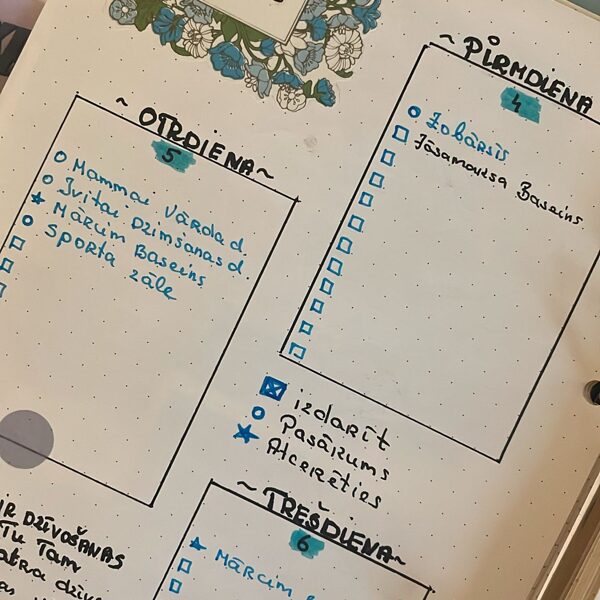 ~ PIRMDIENA
4
Zobārsts
Jāsamaksa Baseins
~ OTRDIENA ~
5
Mammai Vārda d.
Ivitai Dzimšanas d.
Mārcim Baseins
Sporta zāle
izdarīt
Pasākums
Atcerēties
~ TREŠDIENA ~
6
IR DZĪVOŠANAS
Tu Tam